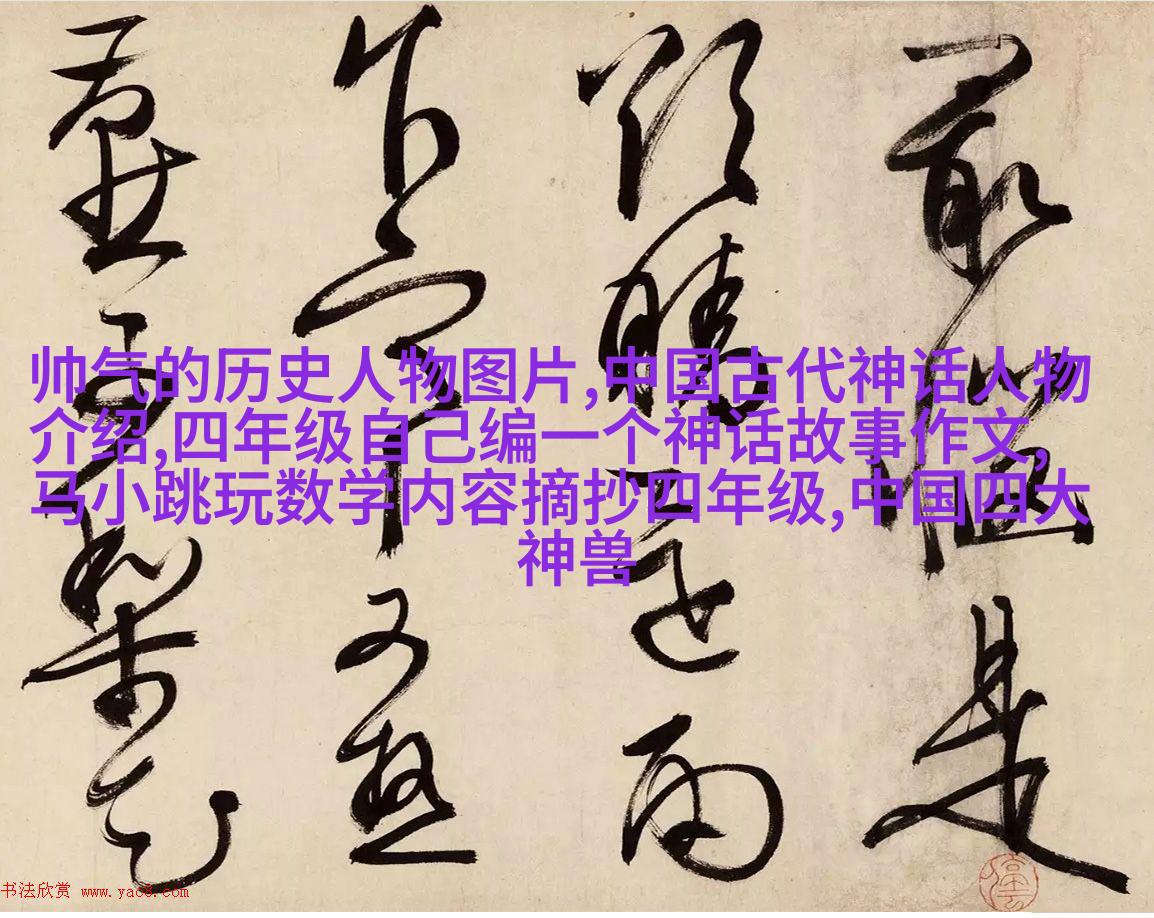 最惱是
欲晴還雨
乍寒又熱
燕子梨花
帅气的历史人物图片,中国古代神话人物
介绍,四年级自己编一个神话故事作文,
马小跳玩数学内容摘抄四年级,中国四大
神兽
书法欣赏 www.yac8.com